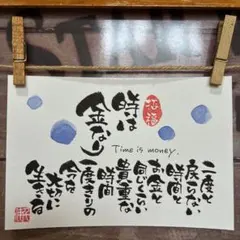 招福
時は
金なり
Time is money.
二度と
戻らない
時間と
お金と
同じくらい
貴重な
時間
一度きりの
今を
大切に
生きる